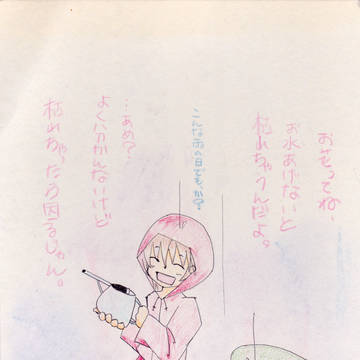 お花ってね、
お水あげないと
枯れちゃうんだよ。
こんな雨の日でも、か?
…あめ?
よく分かんないけど
枯れちゃったら困るじゃん。